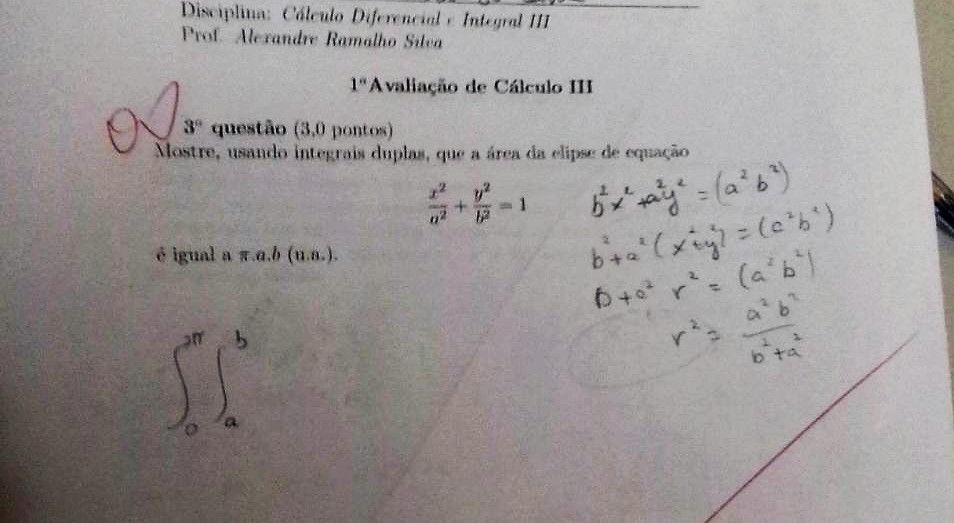 Disciplina: Cálculo Diferencial e Integral III
Prof. Alexandre Ramalho Silva
1ª Avaliação de Cálculo III
3ª questão (3,0 pontos)
Mostre, usando integrais duplas, que a área da elipse de equação
x²/a² + y²/b² = 1
é igual a π.a.b (u.a.).
b²x² + a²y² = (a²b²)
b² + a² (x² + y²) = (a²b²)
b + a² r² = (a²b²)
r² = a²b² / b² + a²
∫₀^2π ∫ₐ^b